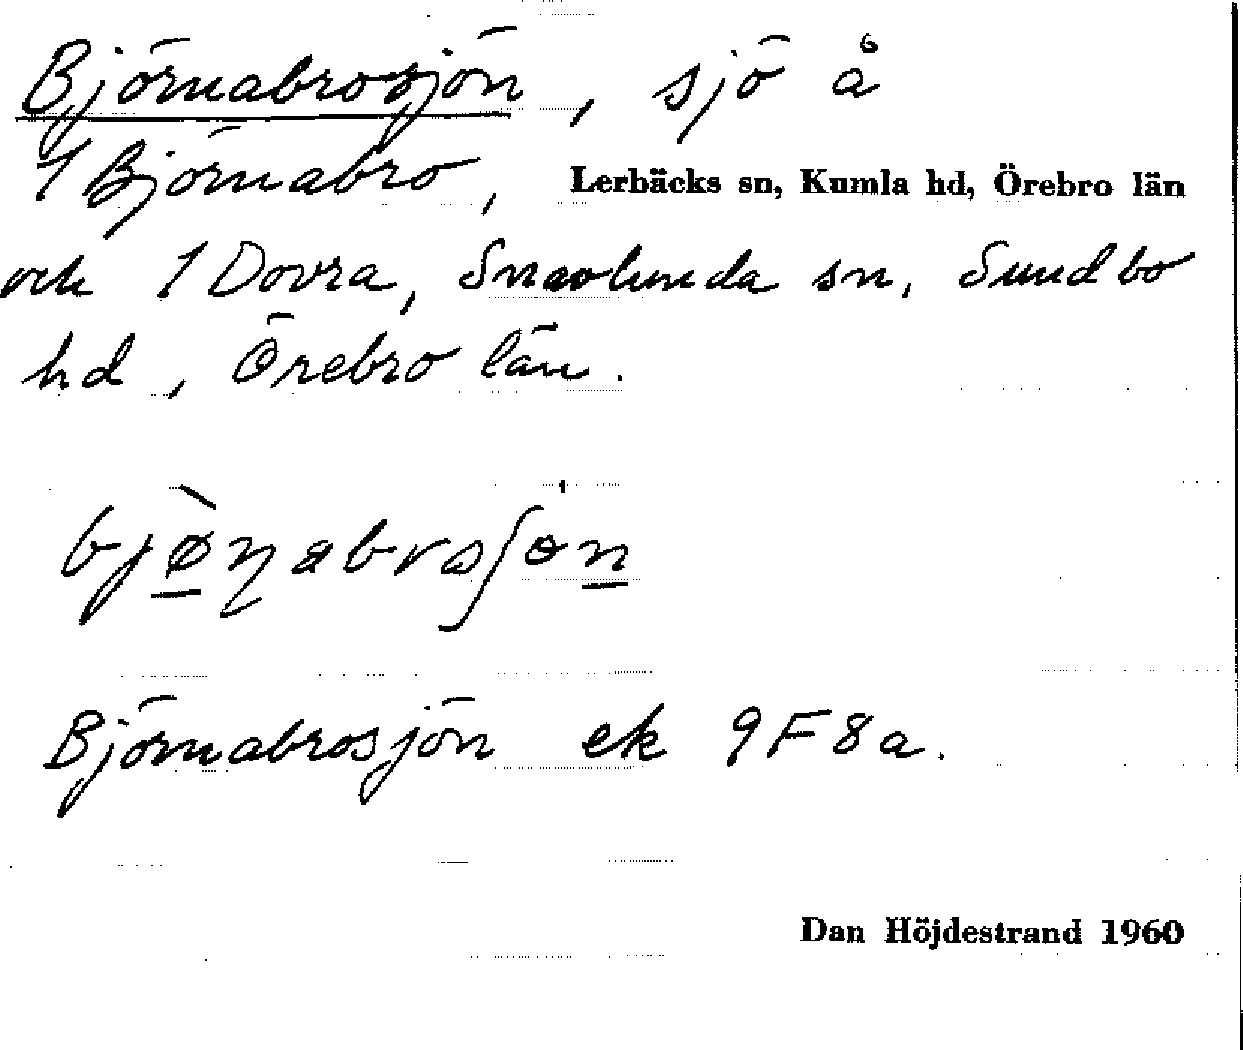 Björnabrosjön, sjö å
1 Björnabro, Lerbäcks sn, Kumla hd, Örebro län
och 1 Dovra, Snavlunda sn, Sundbo
hd, Örebro län.
Björnabrosjön ek 9F8a.
Dan Höjdestrand 1960